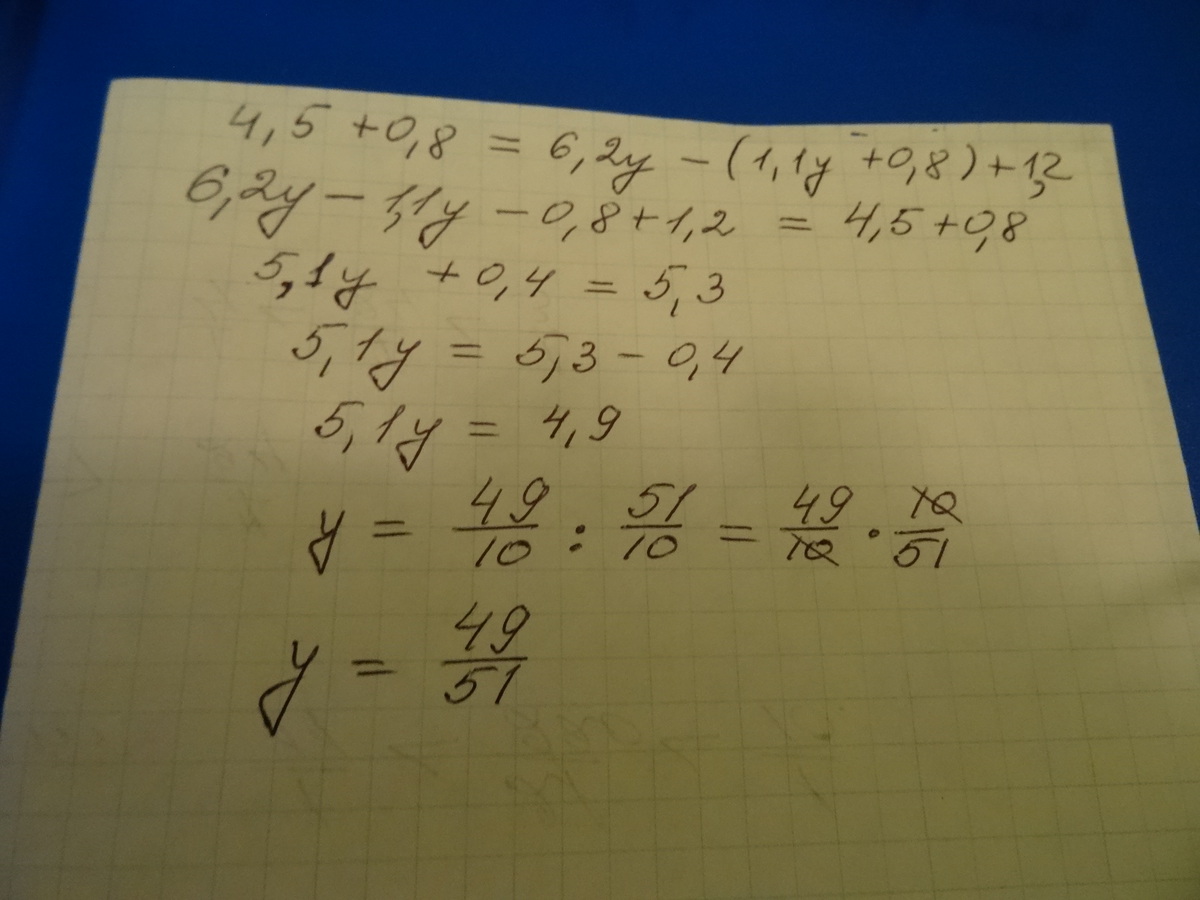 4,5 + 0,8 = 6,2y - (1,1y + 0,8) + 1,2
6,2y - 1,1y - 0,8 + 1,2 = 4,5 + 0,8
5,1y + 0,4 = 5,3
5,1y = 5,3 - 0,4
5,1y = 4,9
y = 49/10 : 51/10 = 49/10 · 10/51
y = 49/51